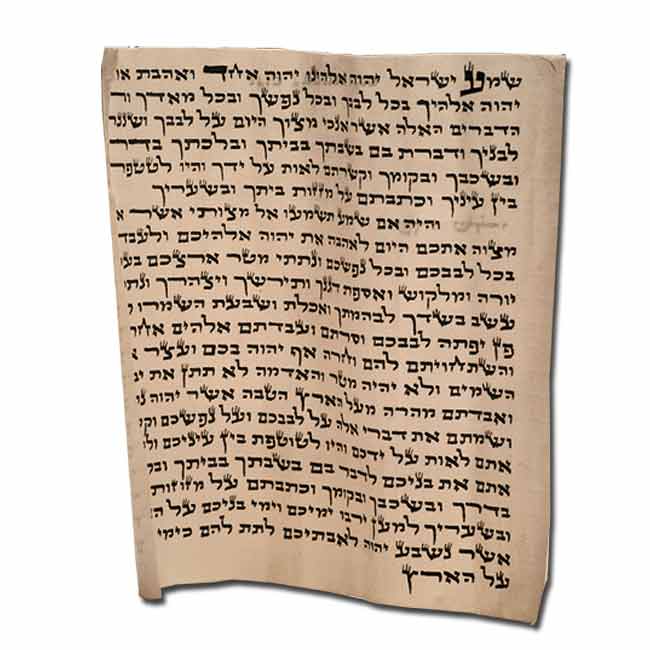 שמע ישראל יהוה אלהינו יהוה אחד ואהבת או
יהוה אלהיך בכל לבבך ובכל נפשך ובכל מאדך וה
הדברים האלה אשר אנכי מצוך היום על לבבך ושננ
לבניך ודברת בם בשבתך בביתך ובלכתך בדר
ובשכבך ובקומך וקשרתם לאות על ידך והיו לטטפת
בין עיניך וכתבתם על מזזות ביתך ובשעריך
והיה אם שמע תשמעו אל מצותי אשר א
מצוה אתכם היום לאהבה את יהוה אלהיכם ולעבד
בכל לבבכם ובכל נפשכם ונתתי מטר ארצכם בע
יורה ומלקוש ואספת דגנך ותירשך ויצהרך ונת
עשב בשדך לבהמתך ואכלת ושבעת השמרו
פן יפתה לבבכם וסרתם ועבדתם אלהים אחר
והשתחויתם להם וחרה אף יהוה בכם ועצר א
השמים ולא יהיה מטר והאדמה לא תתן את י
ואבדתם מהרה מעל הארץ הטבה אשר יהוה נ
ושמתם את דברי אלה על לבבכם ועל נפשכם וק
אתם לאות על ידכם והיו לטוטפת בין עיניכם ול
אתם את בניכם לדבר בם בשבתך בביתך ובל
בדרך ובשכבך ובקומך וכתבתם על מזוזות
ובשעריך למען ירבו ימיכם וימי בניכם על הא
אשר נשבע יהוה לאבתיכם לתת להם כימי
על הארץ